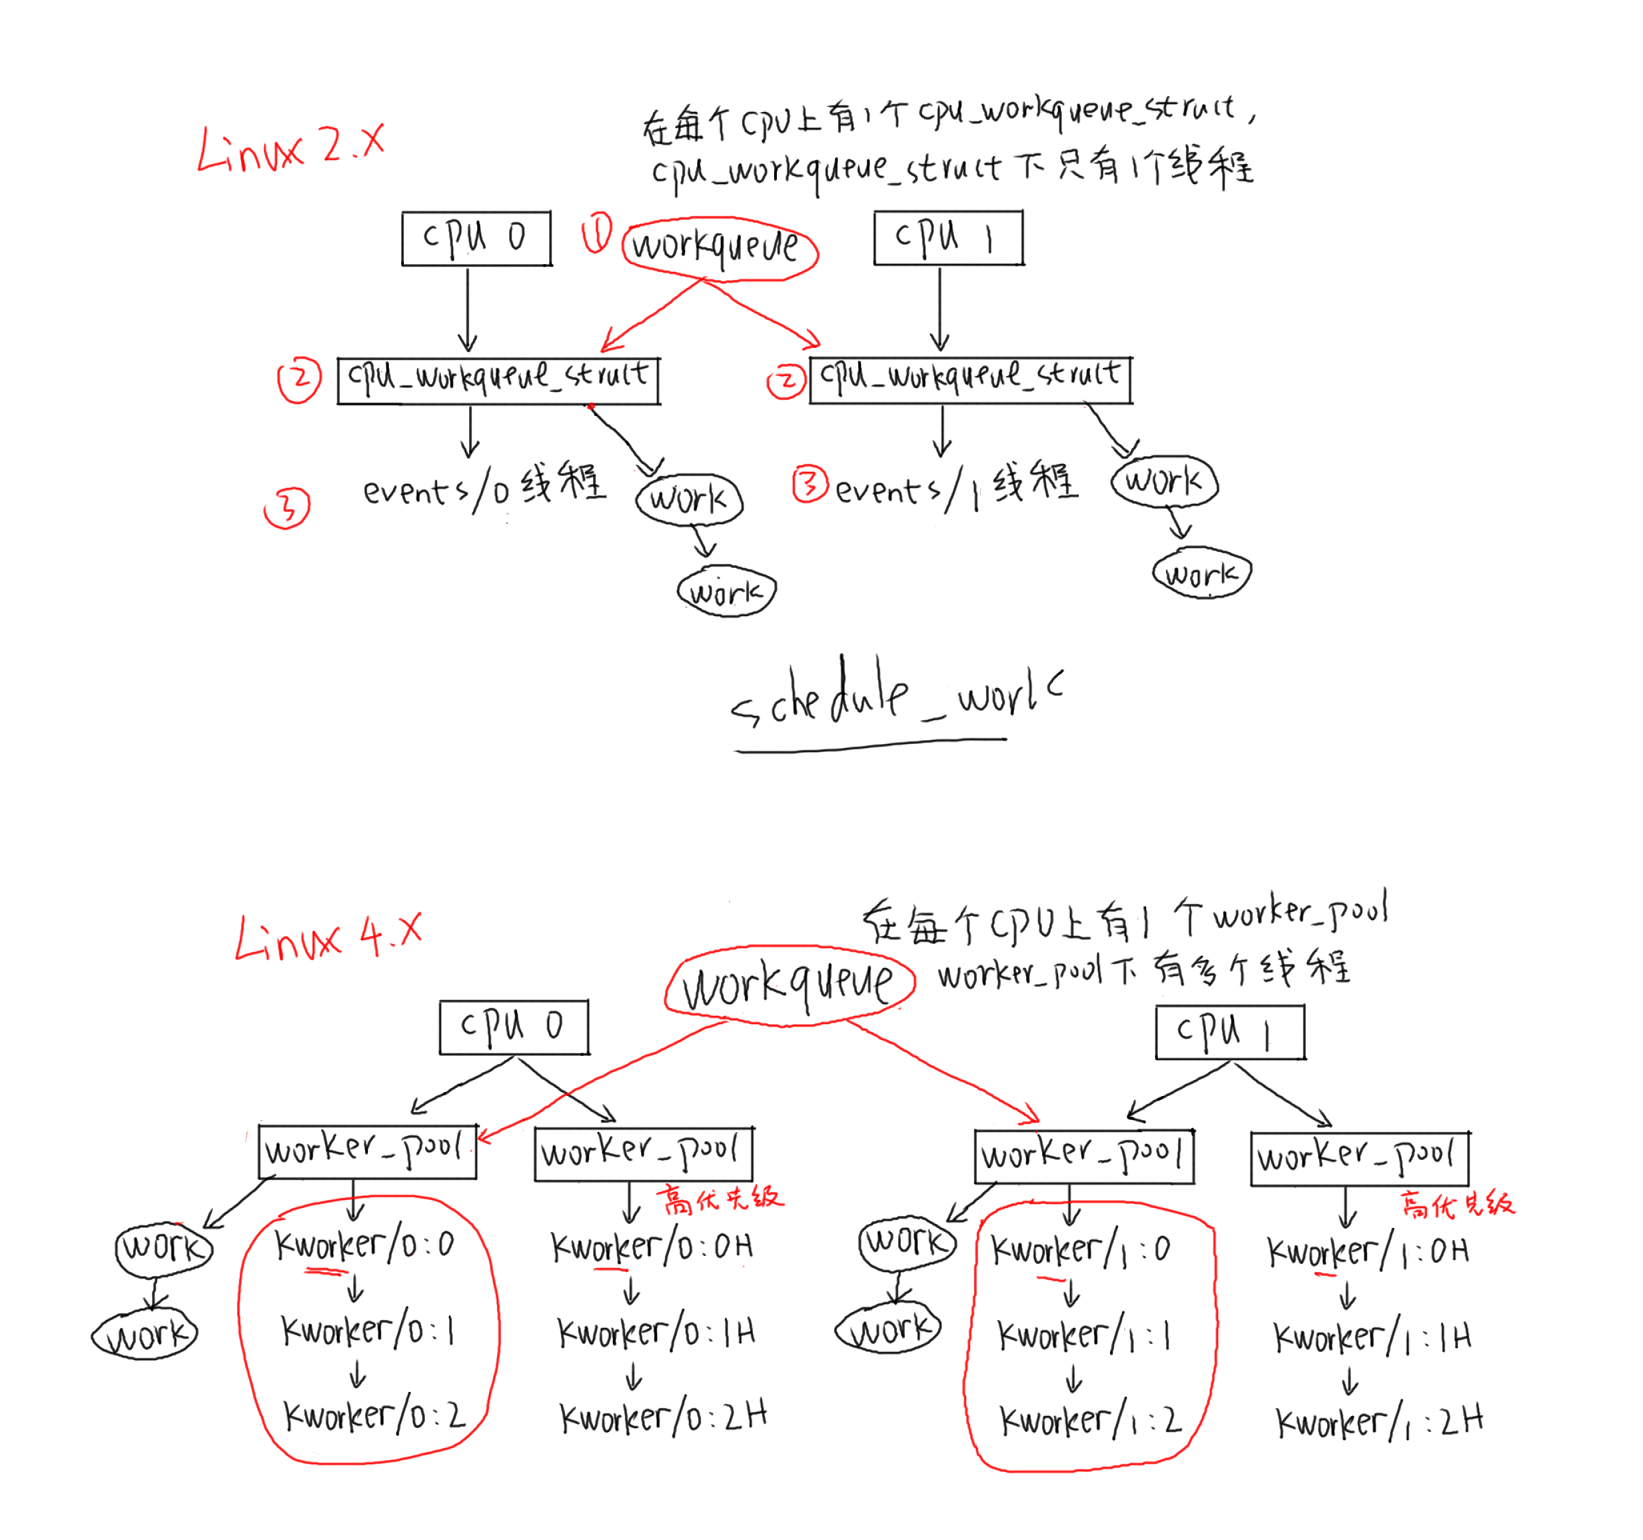 Linux 2.X
在每个CPU上有1个cpu_workqueue_struct,
cpu_workqueue_struct下只有1个线程
cpu 0
① workqueue
cpu 1
② cpu_workqueue_struct
② cpu_workqueue_struct
③ events/0线程
work
work
③ events/1线程
work
work
schedule_work
Linux 4.X
在每个CPU上有1个worker_pool
worker_pool下有多个线程
workqueue
cpu 0
cpu 1
worker_pool
worker_pool
高优先级
worker_pool
worker_pool
高优先级
work
Kworker/0:0
Kworker/0:0H
work
Kworker/1:0
Kworker/1:0H
work
Kworker/0:1
Kworker/0:1H
work
Kworker/1:1
Kworker/1:1H
Kworker/0:2
Kworker/0:2H
Kworker/1:2
Kworker/1:2H